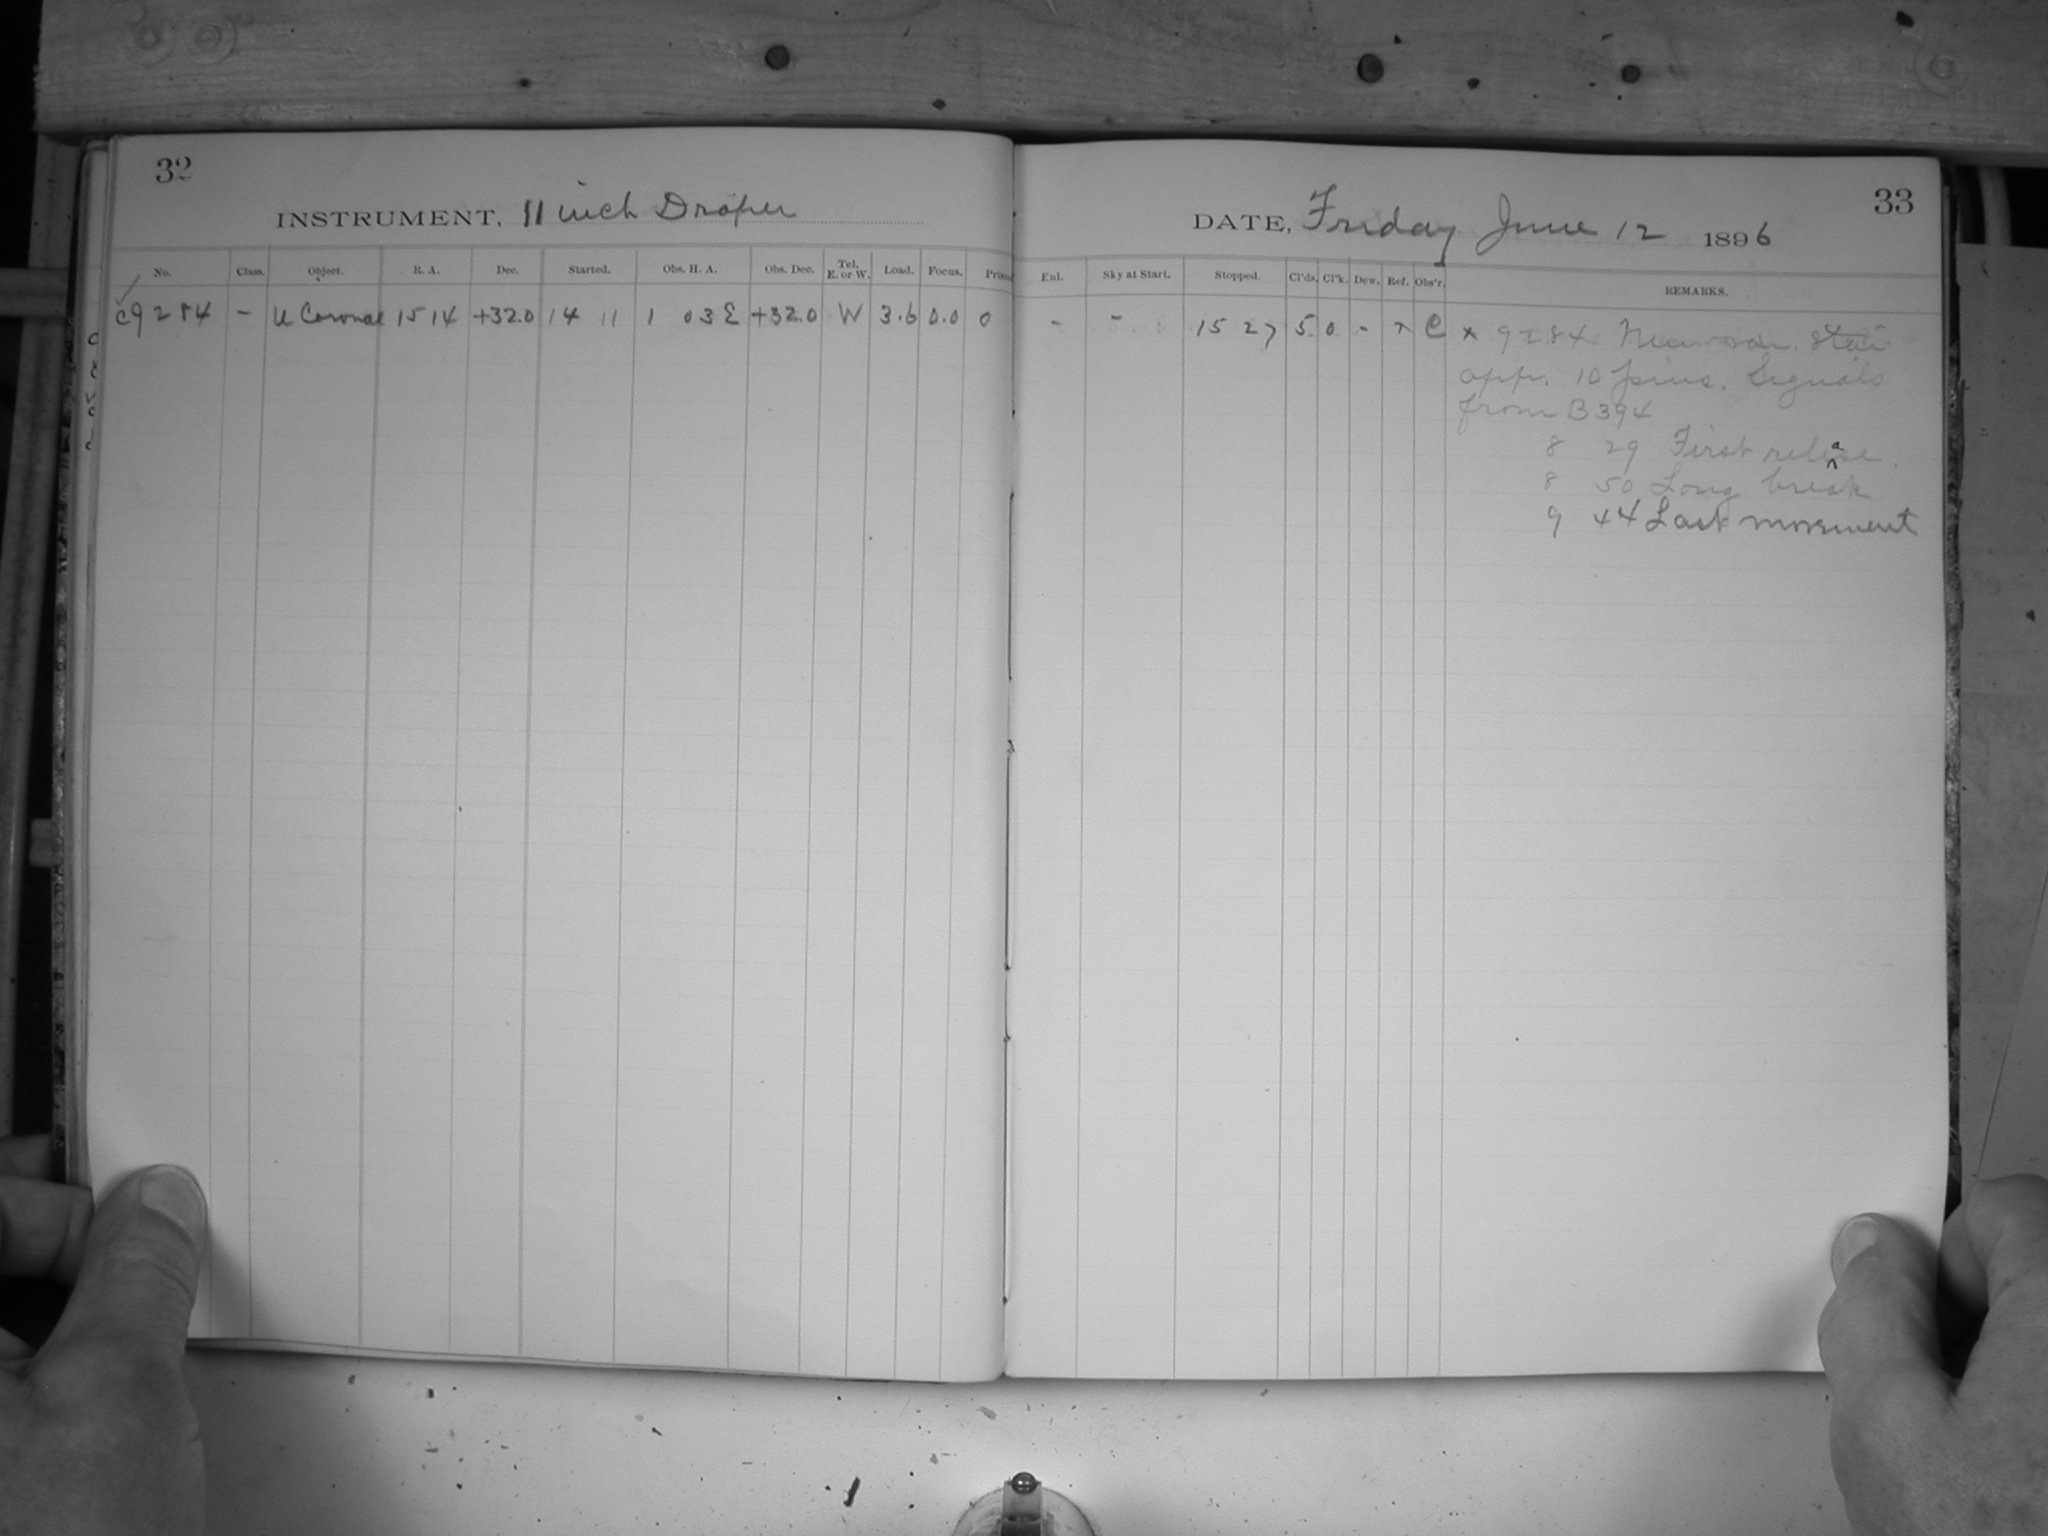 32
INSTRUMENT, 11 inch Draper
No. Class. Object. R. A. Dec. Started. Obs. H. A. Obs. Dec. Tel. E. or W. Load. Focus.
C9284 - U Coronae 15 14 +32.0 14 11 1 03 E +32.0 W 3.6 0.0 0
33
DATE, Friday June 12 1896
Enl. Sky at Start. Stopped. Cl'ds. Cl'k. Dew. Ref. Obs'r. REMARKS.
- - 15 27 5 0 - x C x 9284 star
app. 10 pins. Signals
from B394
8 29 First release.
8 50 Long break
9 44 Last movement